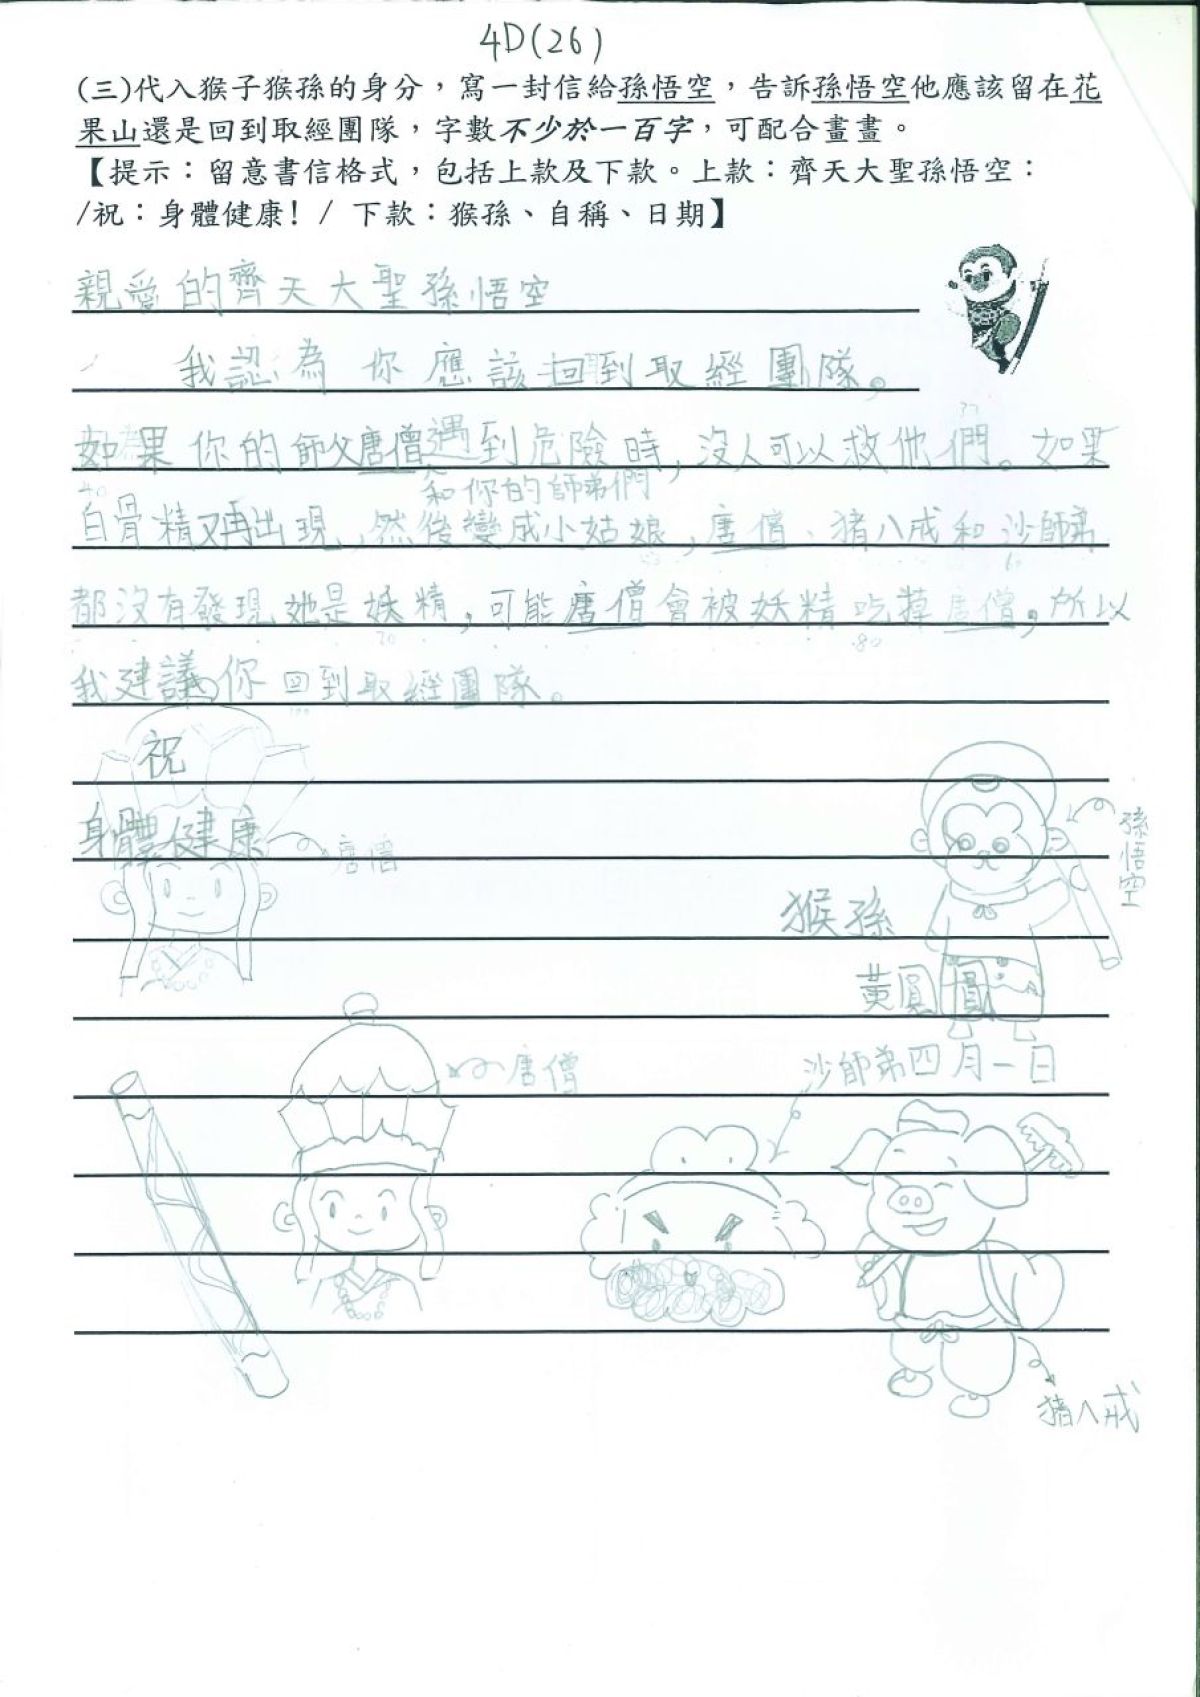 4D(26)
(三)代入猴子猴孫的身分，寫一封信給孫悟空，告訴孫悟空他應該留在花
果山還是回到取經團隊，字數不少於一百字，可配合畫畫。
【提示：留意書信格式，包括上款及下款。上款：齊天大聖孫悟空：
/祝：身體健康! / 下款：猴孫、自稱、日期】
親愛的齊天大聖孫悟空
我認為你應該回到取經團隊。
如果你的師父唐僧遇到危險時，沒人可以救他們。如果
和你的師弟們
白骨精又再出現，然後變成小姑娘，唐僧、豬八戒和沙師弟
都沒有發現她是妖精，可能唐僧會被妖精吃掉唐僧。所以
我建議你回到取經團隊。
祝
身體健康
唐僧
孫悟空
猴孫
黃圓圓
唐僧
沙師弟四月一日
豬八戒